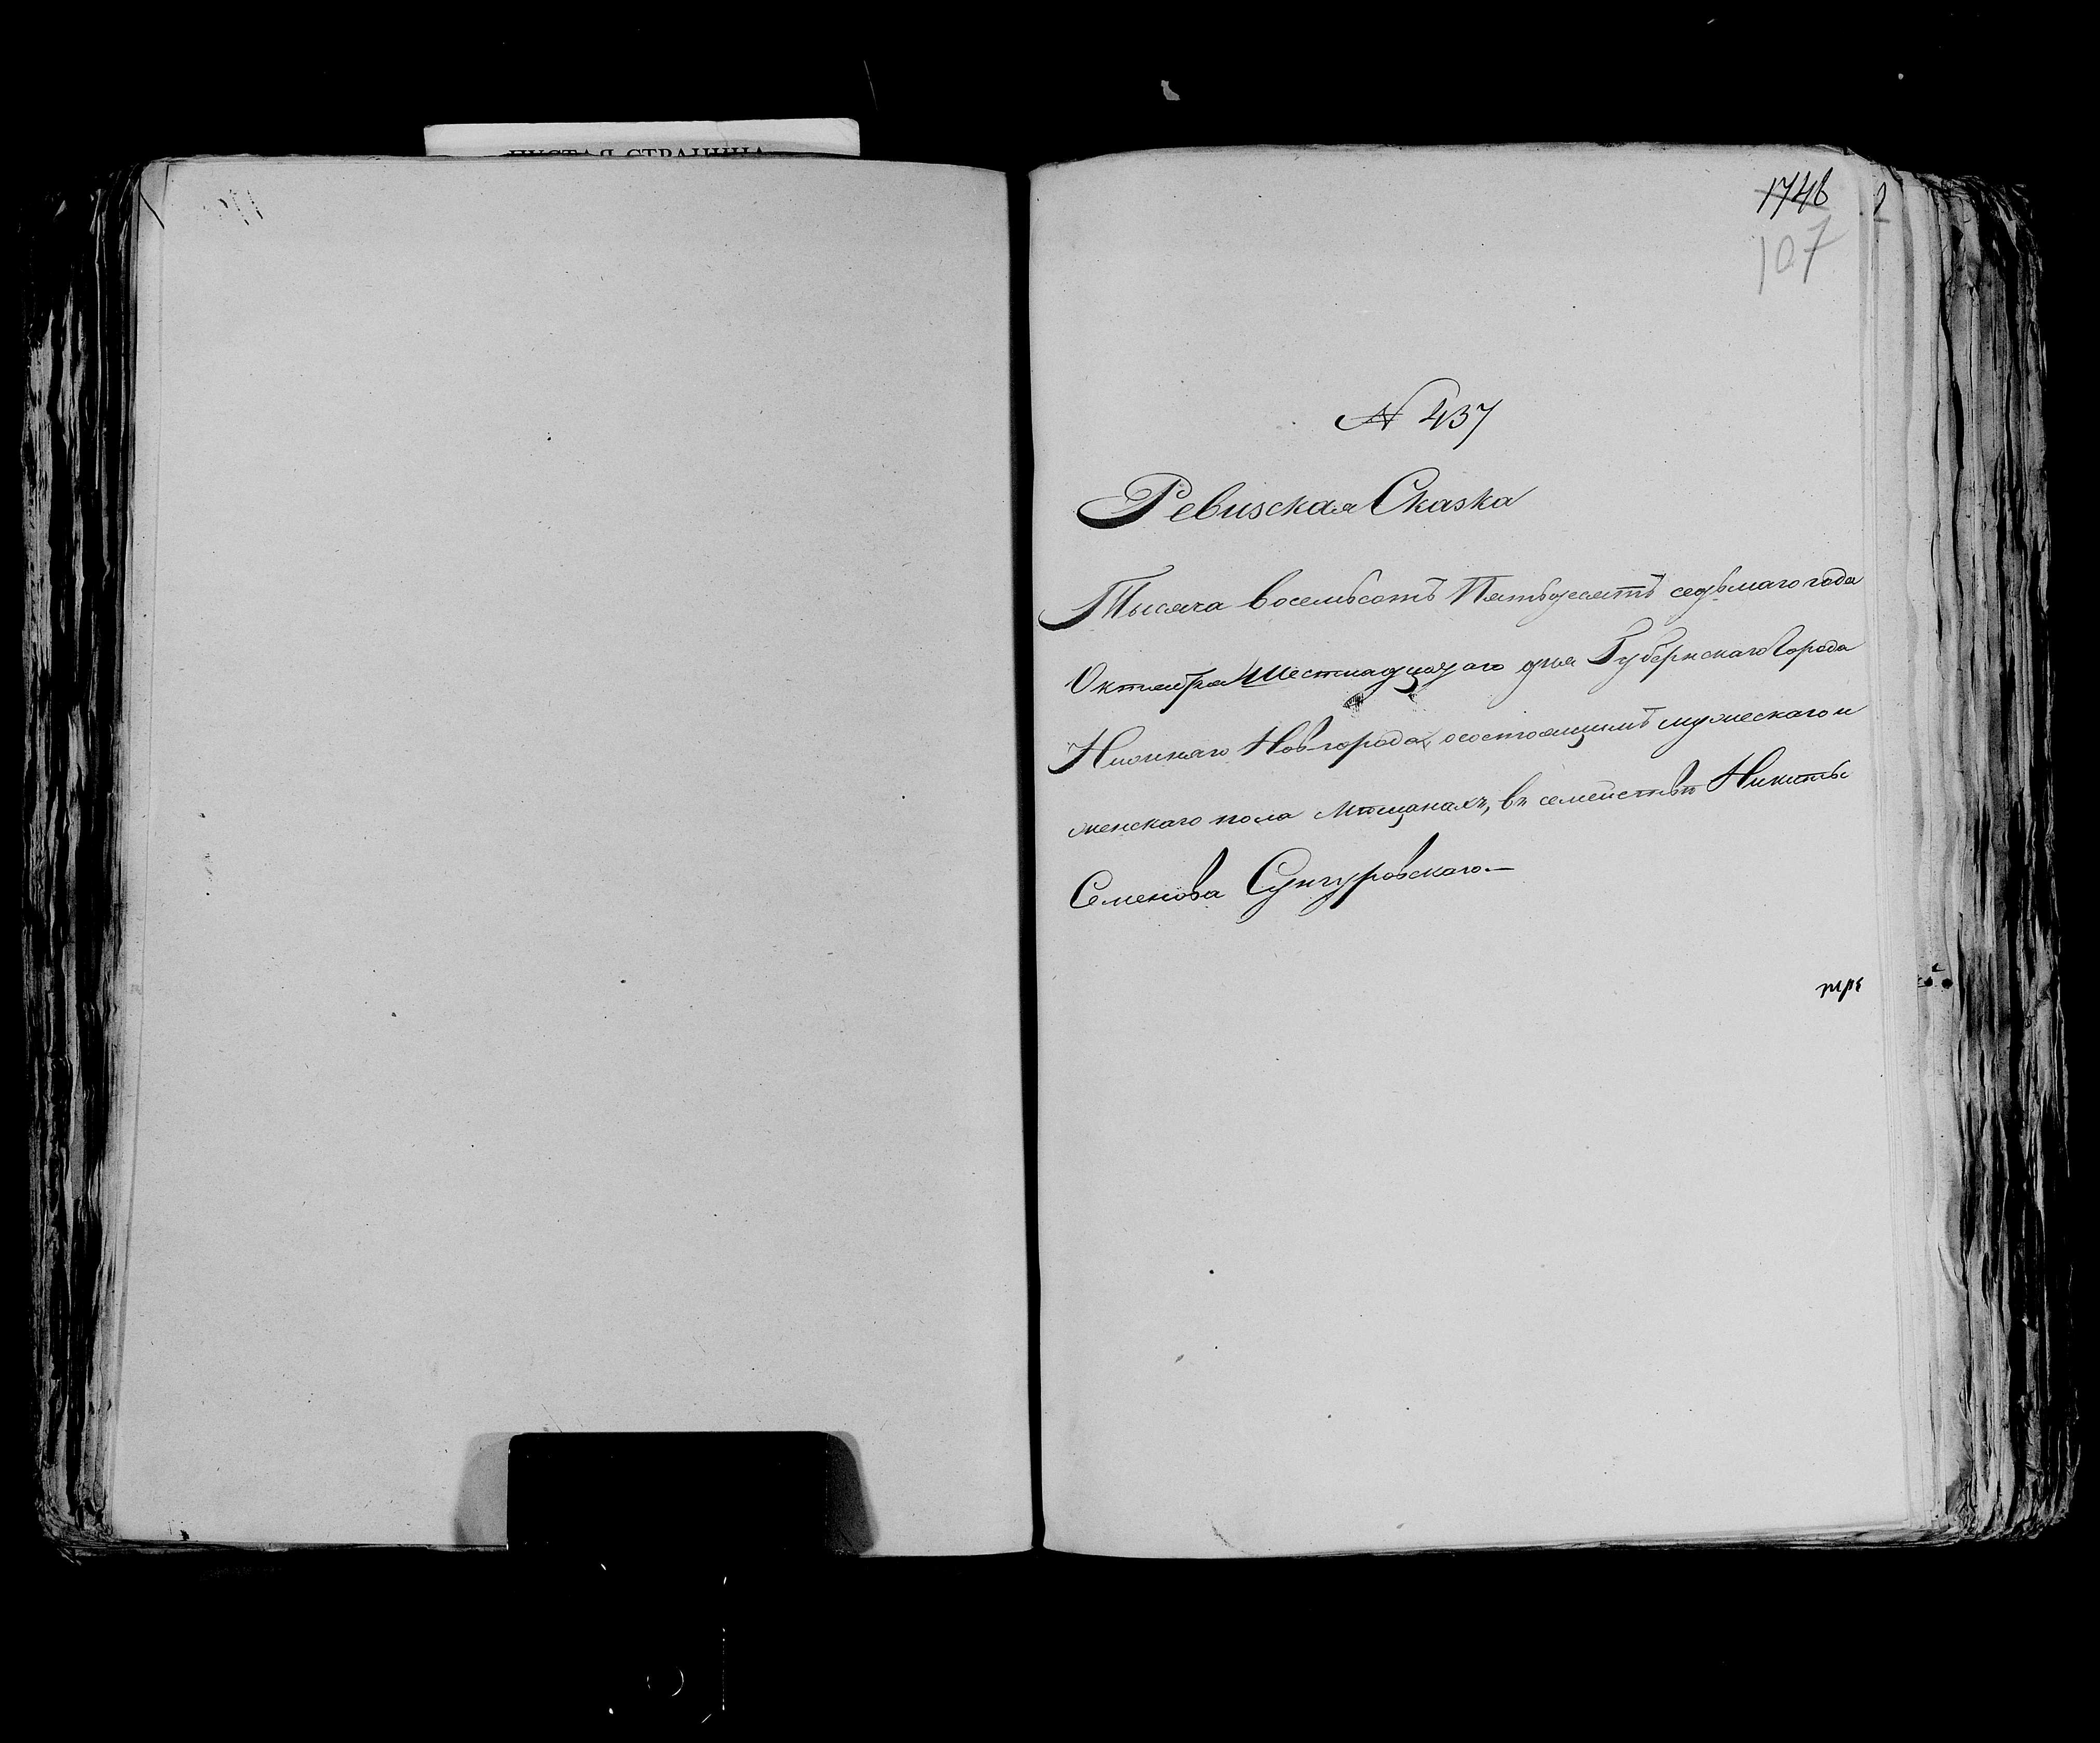 ЧИСТАЯ СТРАНИЦА
1746
107
№ 437
Ревизская Сказка
Тысяча восемьсотъ Пятьдесятъ седьмаго года
Октября Шестнадцатаго дня Губернскаго Города
Нижняго Новгорода, о состоящихъ мужескаго и
женскаго пола мѣщанахъ, въ семействѣ Никиты
Семенова Сунгуровскаго.—